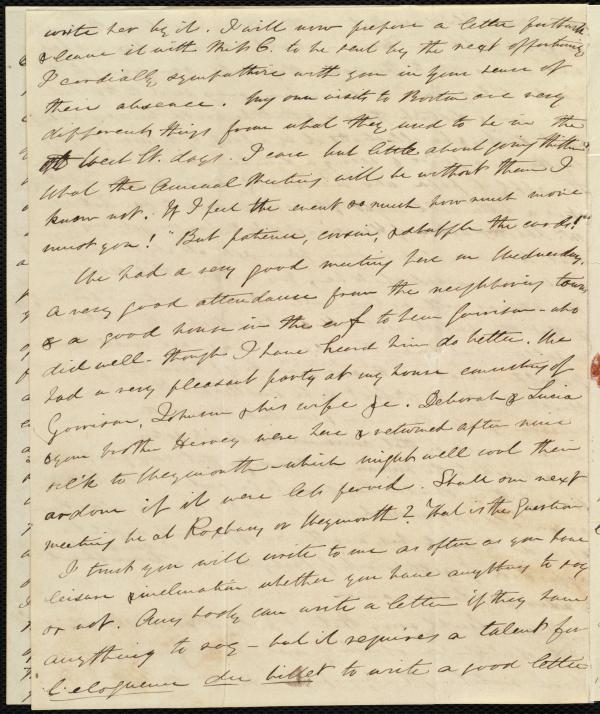 write her by it. I will now prepare a letter forthwith
& leave it with Miss C. to be sent by the next opportunity
I cordially sympathise with you in your sense of
their absence. My own visits to Boston are very
different things from what they used to be in the
West St. days. I care but little about going thither.
What the Annual Meeting will be without them I
know not. If I feel the event so much how much more
must you! "But patience, cousin, & shuffle the cards!"
We had a very good meeting here on Wednesday,
a very good attendance from the neighboring towns
& a good house in the evg to hear Garrison - who
did well - though I have heard him do better. We
had a very pleasant party at my house consisting of
Garrison, Johnson & his wife &c. Deborah & Lucia
& your brother Hervey were here & returned after nine
o'clk to Weymouth - which might well cool their
ardour if it were less fervid. Shall our next
meeting be at Roxbury or Weymouth? That is the Question.
I trust you will write to me as often as you have
leisure & inclination whether you have anything to say
or not. Any body can write a letter if they have
anything to say - but it requires a talent for
l'eloquence du billet to write a good letter